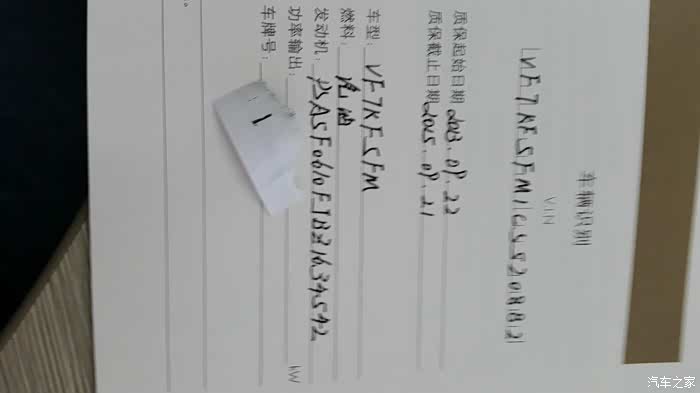 车辆识别
VIN
VF7KFSFM1CS520882
质保起始日期 2013.09.22
质保截止日期 2015.09.21
车型: VF7KFSFM
燃料: 汽油
发动机: PSA5F0610FJBZ1634542
功率输出: kW
车牌号:
1
汽车之家